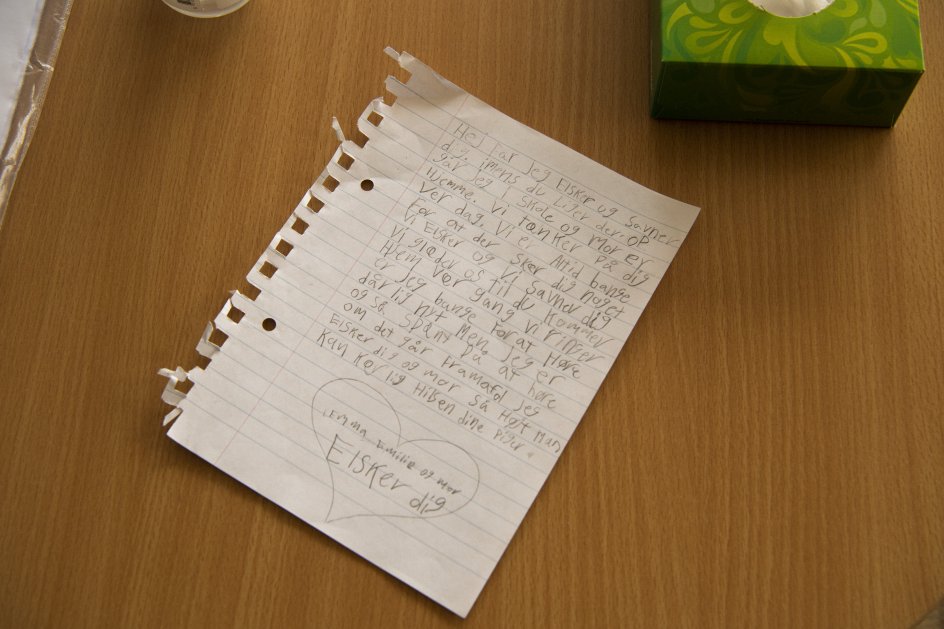 Hej far Jeg Elsker og savner
dig, imens du Liger der op
går jeg i skole og mor er
Hjemme. Vi tænker på dig
Ver dag, Vi er Altid bange
For at der sker dig noget
Vi Elsker og Vi savner dig
Vi glæder os til du kommer
Hjem Vær gang vi ringer
er jeg bange for at Høre
dårlig nyt Men jeg er
og så Spænt på at høre
om det går framafd jeg
Elsker dig og mor så Højt Man
Kan Kærlig Hilsen dine Piger.
Emma Emilie og mor
Elsker dig